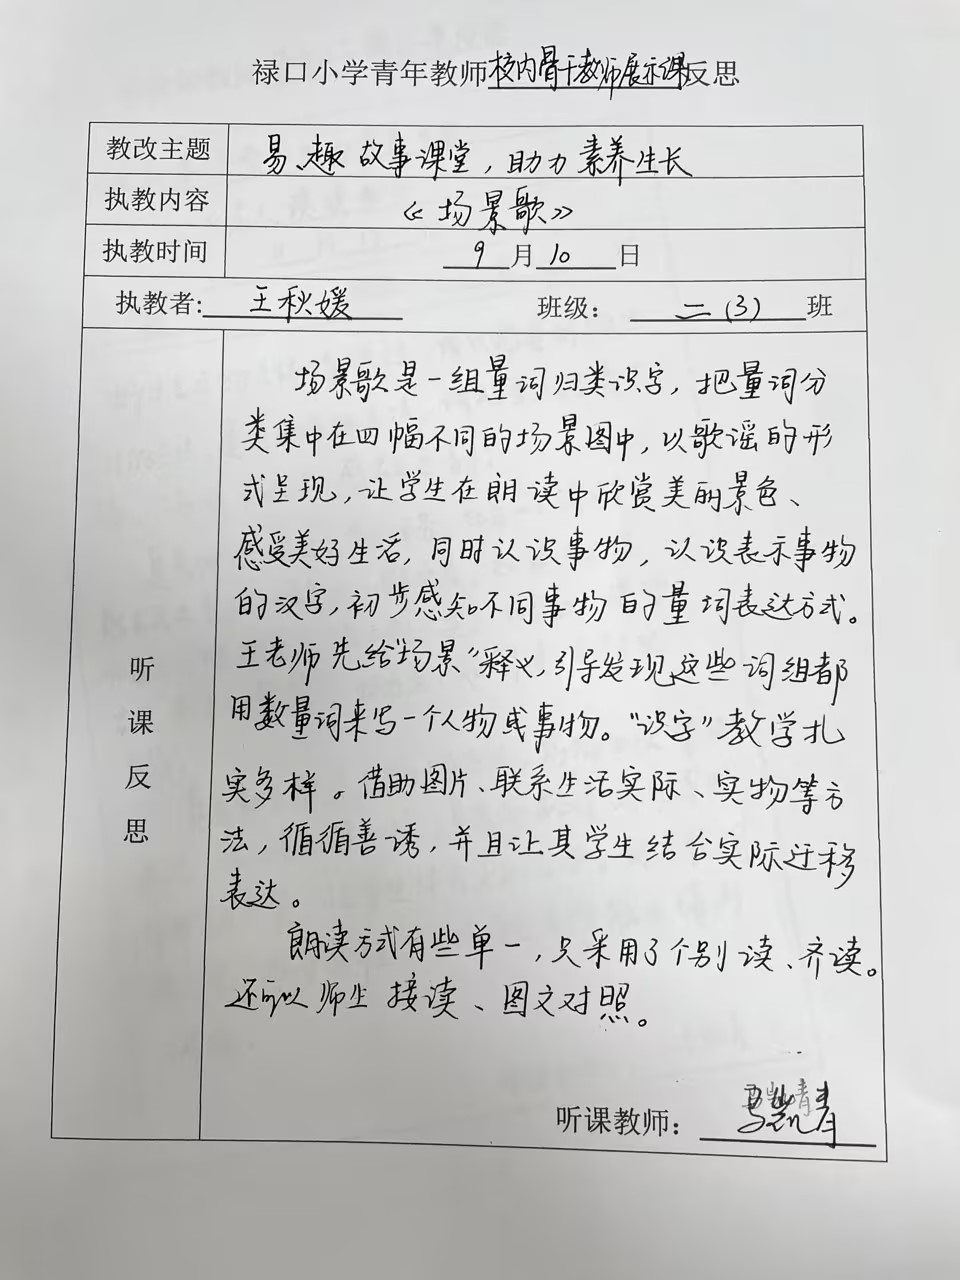 禄口小学青年教师校内骨干教师展示课反思
教改主题 易、趣故事课堂，助力素养生长
执教内容 《场景歌》
执教时间 9月10日
执教者：王秋媛 班级：二（3）班
听课反思
场景歌是一组量词归类识字，把量词分
类集中在四幅不同的场景图中，以歌谣的形
式呈现，让学生在朗读中欣赏美丽景色、
感受美好生活，同时认识事物，认识表示事物
的汉字，初步感知不同事物的量词表达方式。
王老师先给“场景”释义，引导发现这些词组都
用数量词来写一个人物或事物。“识字”教学扎
实多样。借助图片、联系生活实际、实物等方
法，循循善诱，并且让其学生结合实际迁移
表达。
朗读方式有些单一，只采用了个别读、齐读。
还可以师生接读、图文对照。
听课教师：